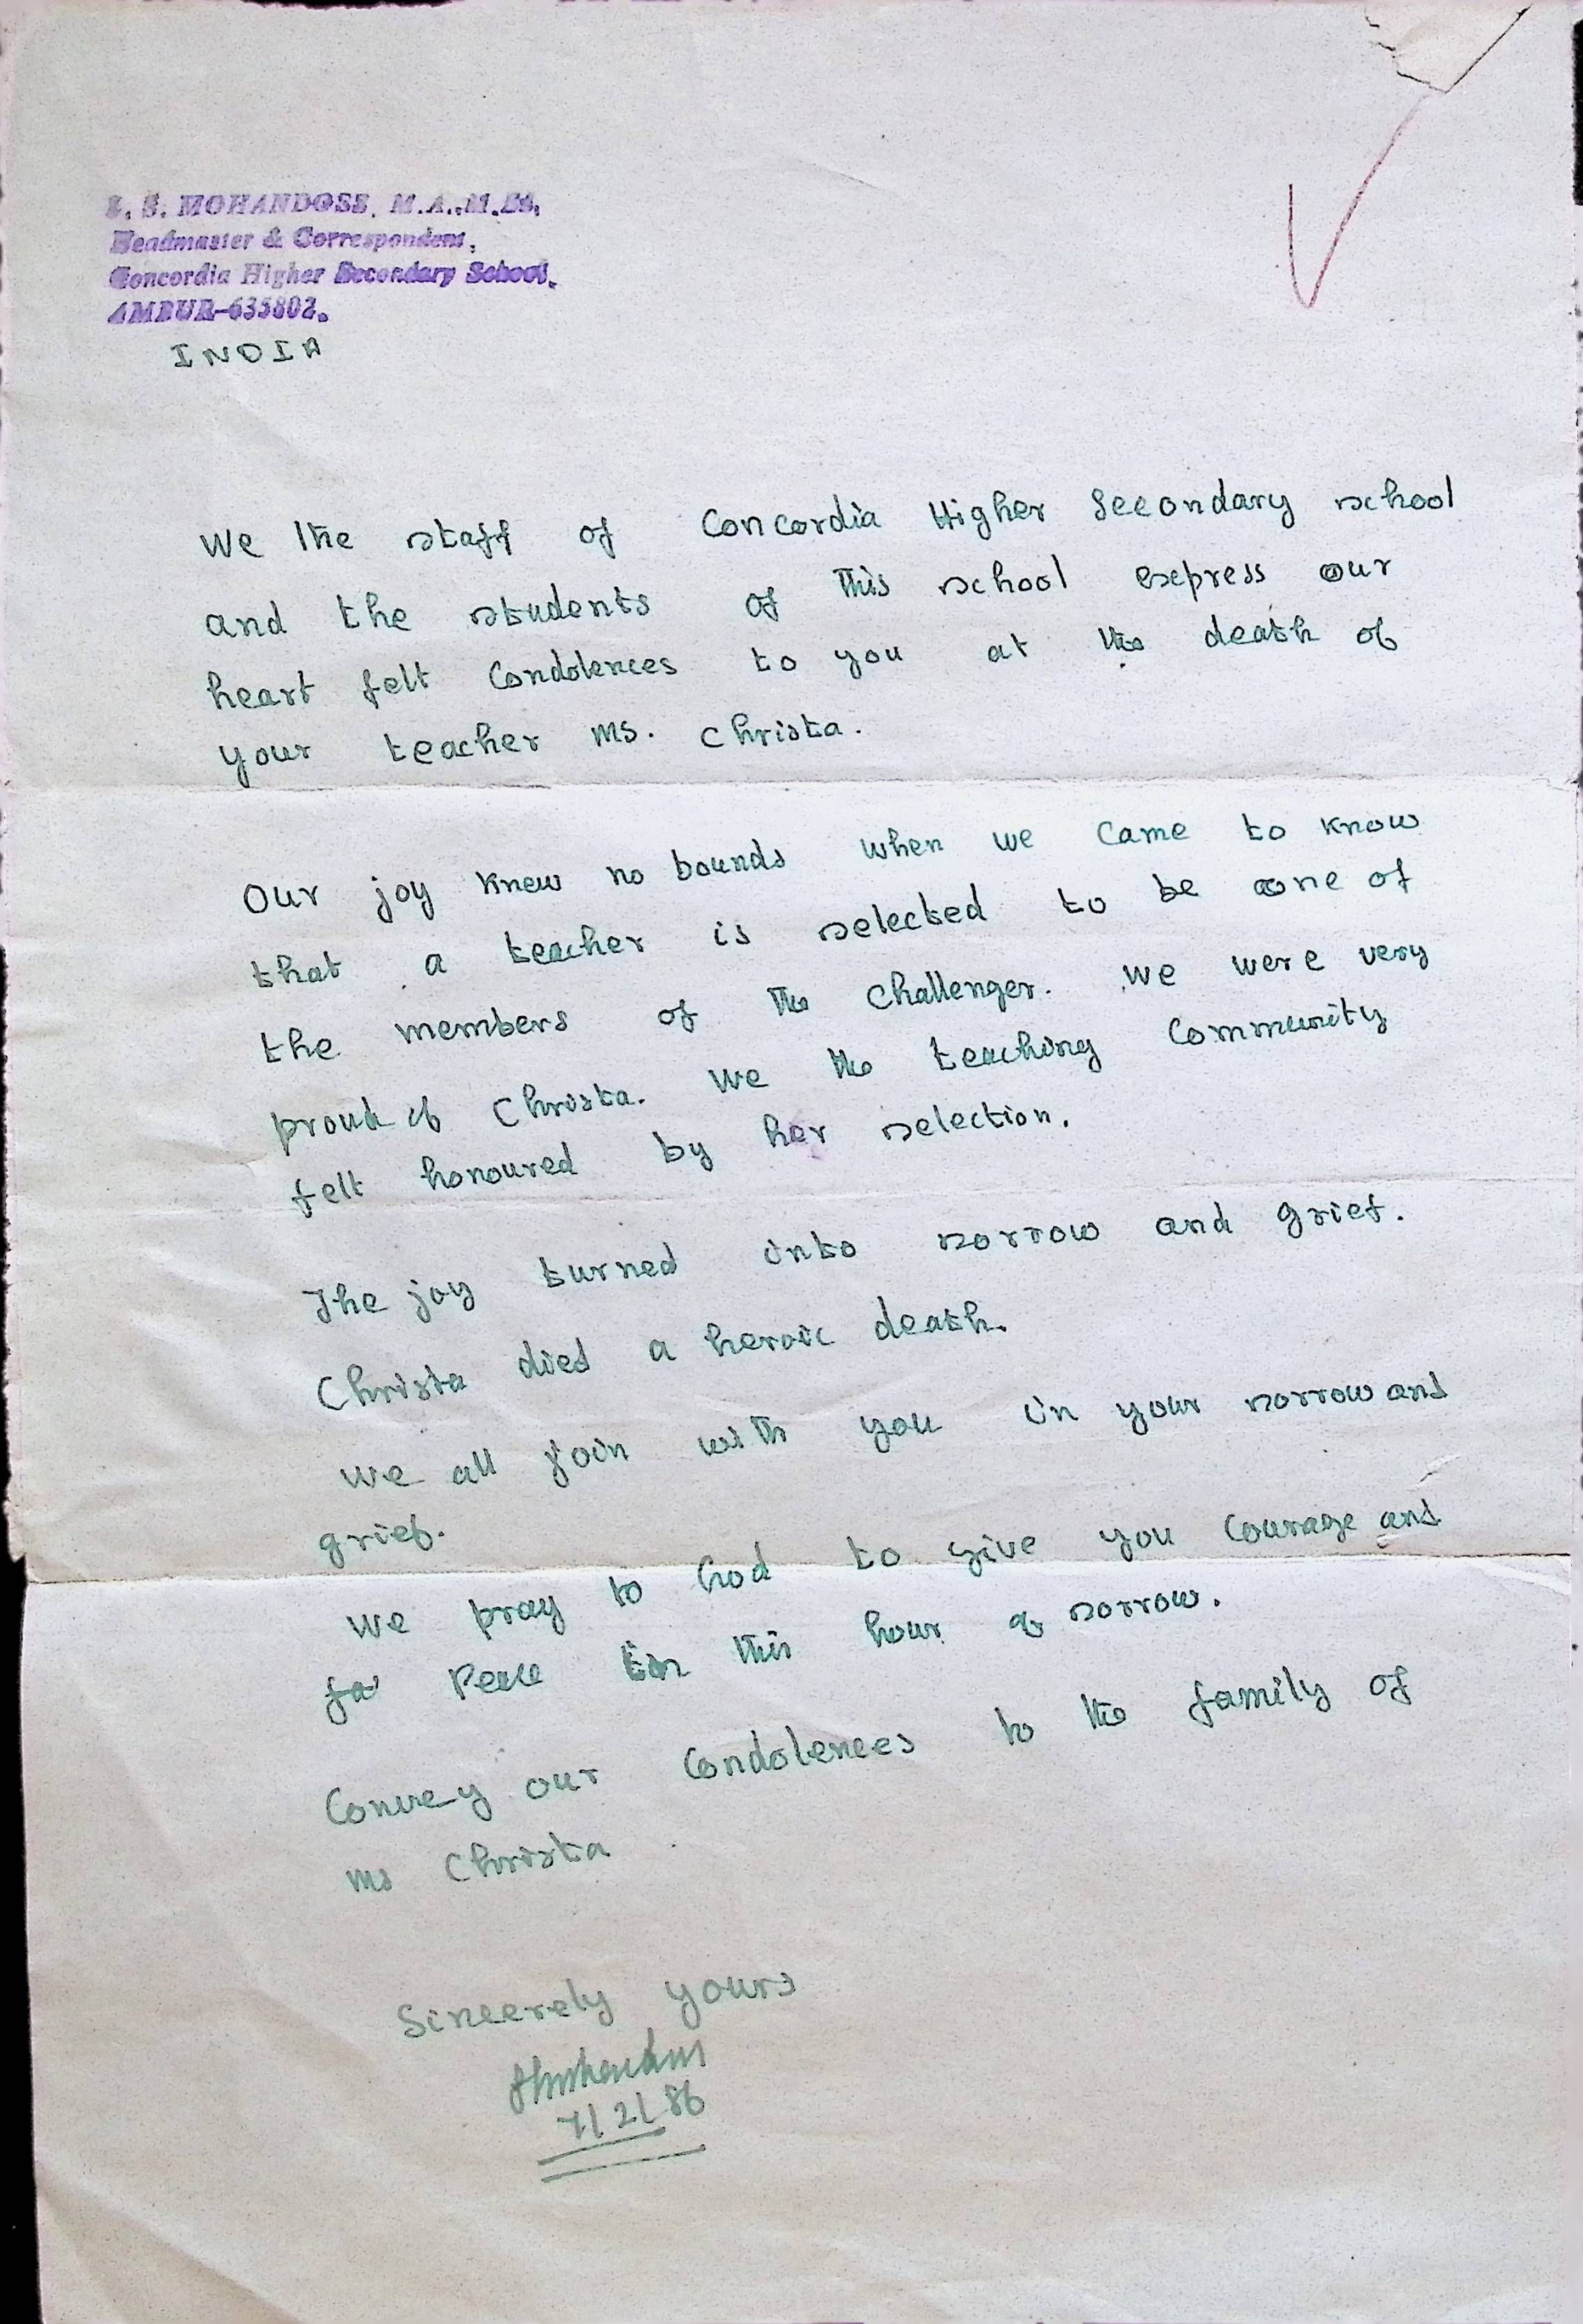 S. S. MOHANDOSS, M.A.,M.Ed,
Headmaster & Correspondent,
Concordia Higher Secondary School,
AMBUR-635802.
INDIA
We the staff of Concordia Higher Secondary school
and the students of this school express our
heart felt Condolences to you at the death of
your teacher Ms. Christa.
Our joy knew no bounds when we came to know
that a teacher is selected to be one of
the members of the Challenger. We were very
proud of Christa. We the teaching Community
felt honoured by her selection.
The joy turned into sorrow and grief.
Christa died a heroic death.
We all join with you in your sorrow and
grief.
We pray to God to give you Courage and
for Peace in this hour of sorrow.
Convey our Condolences to the family of
Ms Christa
Sincerely yours
7/2/86